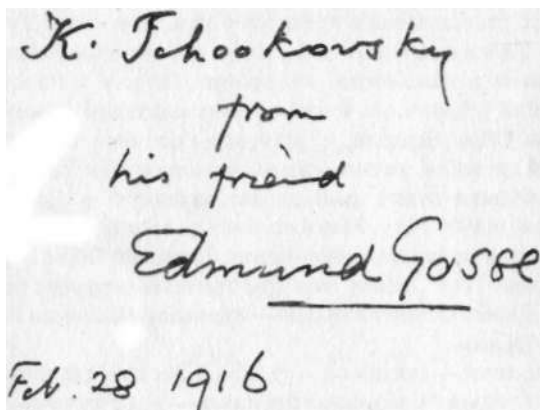 K. Tchookovsky
from
his friend
Edmund Gosse
Feb. 28 1916